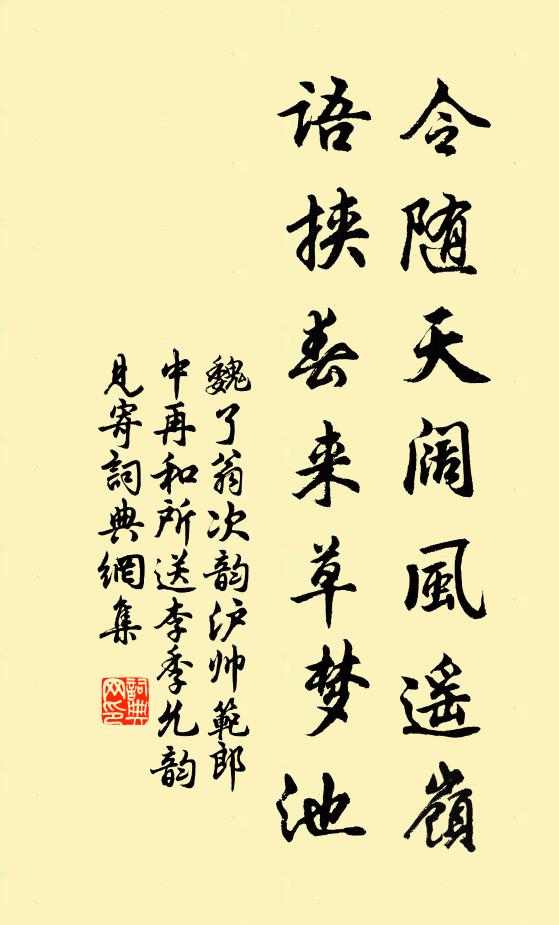 令随天阔風遥嶺
语挟春来草梦池
魏了翁次韵沪帅範郎
中再和所送李季允韵
见寄詞典網集
詞典网印